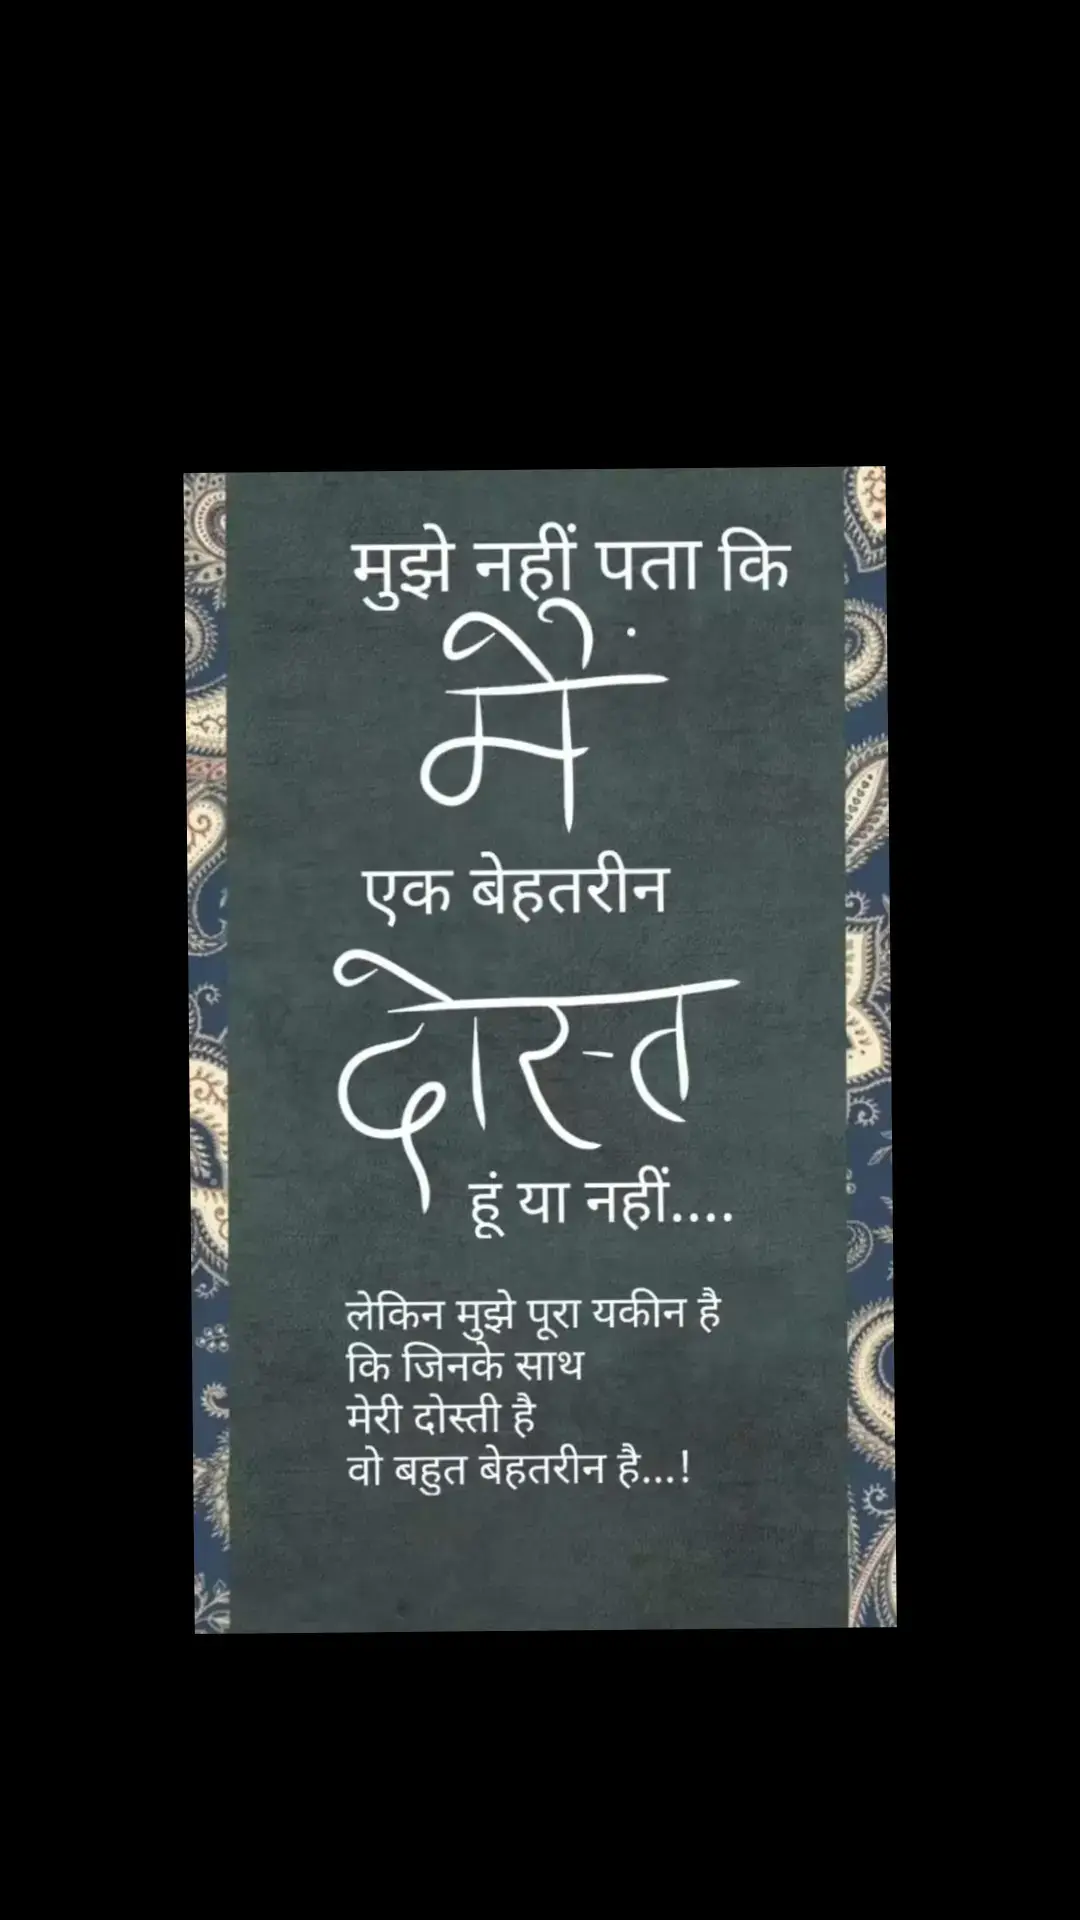 मुझे नहीं पता कि
मैं
एक बेहतरीन
दोस्त
हूं या नहीं....
लेकिन मुझे पूरा यकीन है
कि जिनके साथ
मेरी दोस्ती है
वो बहुत बेहतरीन है...!